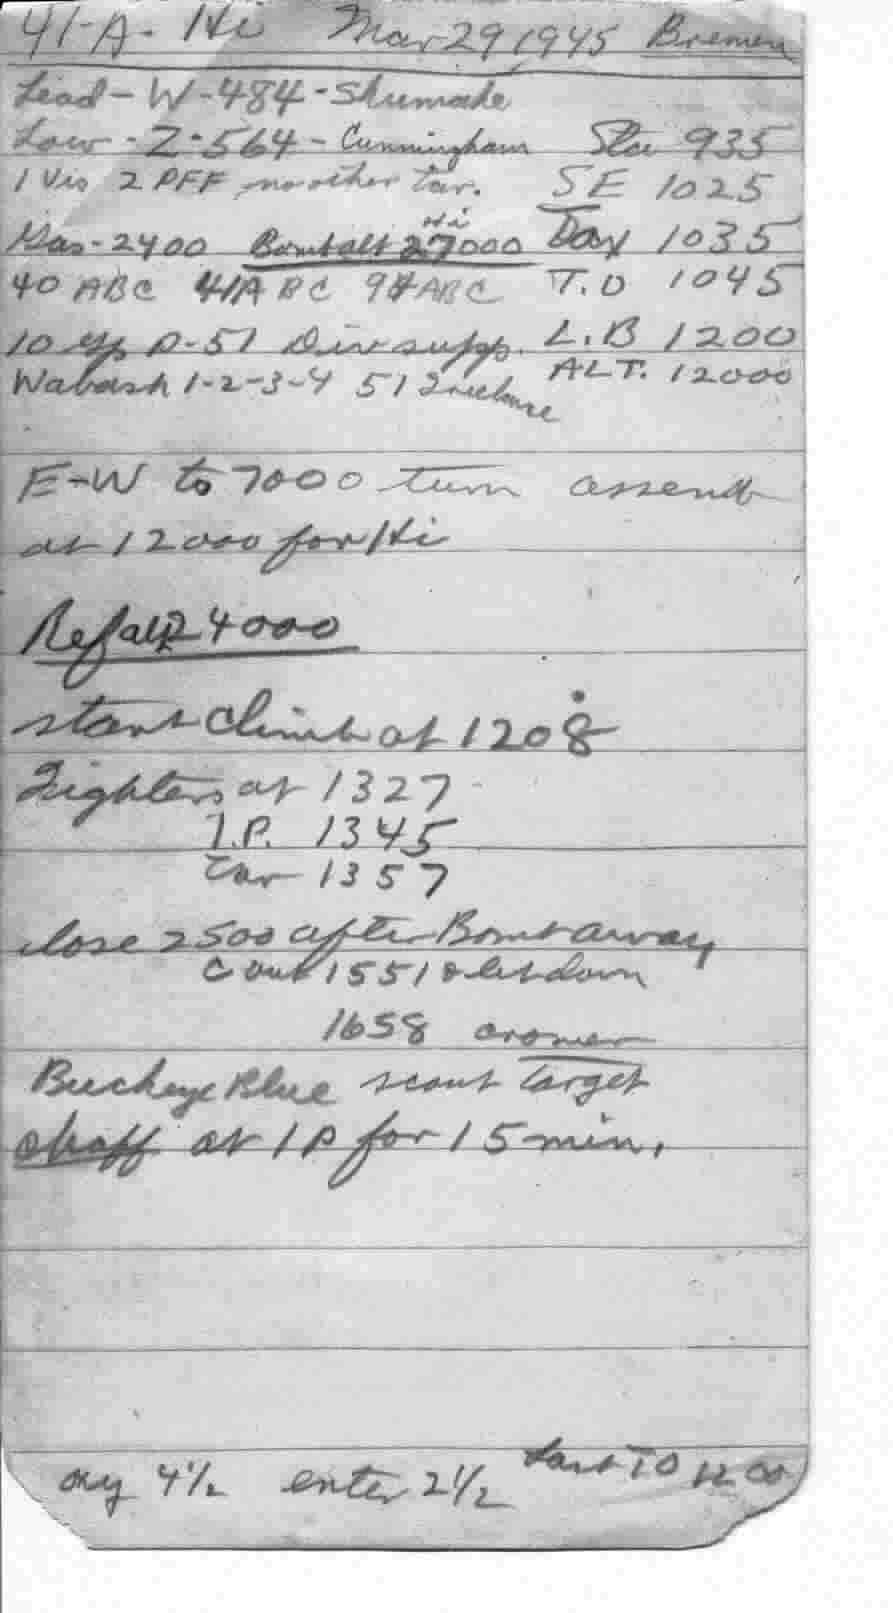 41-A- Hi Mar 29, 1945 Bremen
Lead - W-484 - Shumake
Low - Z-564 - Cunningham Sta 935
1 Vis 2 PFF no other tar. SE 1025
Gas-2400 Bombalt 27000 Hi Taxi 1035
40 ABC 41A BC 94 ABC T.O 1045
10 gp P-51 Div supp. L.B 1200
Wabash 1-2-3-4 51 Freelance ALT. 12000
E-W to 7000 turn assemb
at 12000 for Hi
Ref alt 24000
start climb at 1208
Fighters at 1327
I.P. 1345
Tar 1357
lose 2500 after Bombs away
C out 1551 & let down
1658 cromer
Buckeye Blue scout Target
chaff at IP for 15 min.
oxy 4½ enter 2½ Last TO 1200